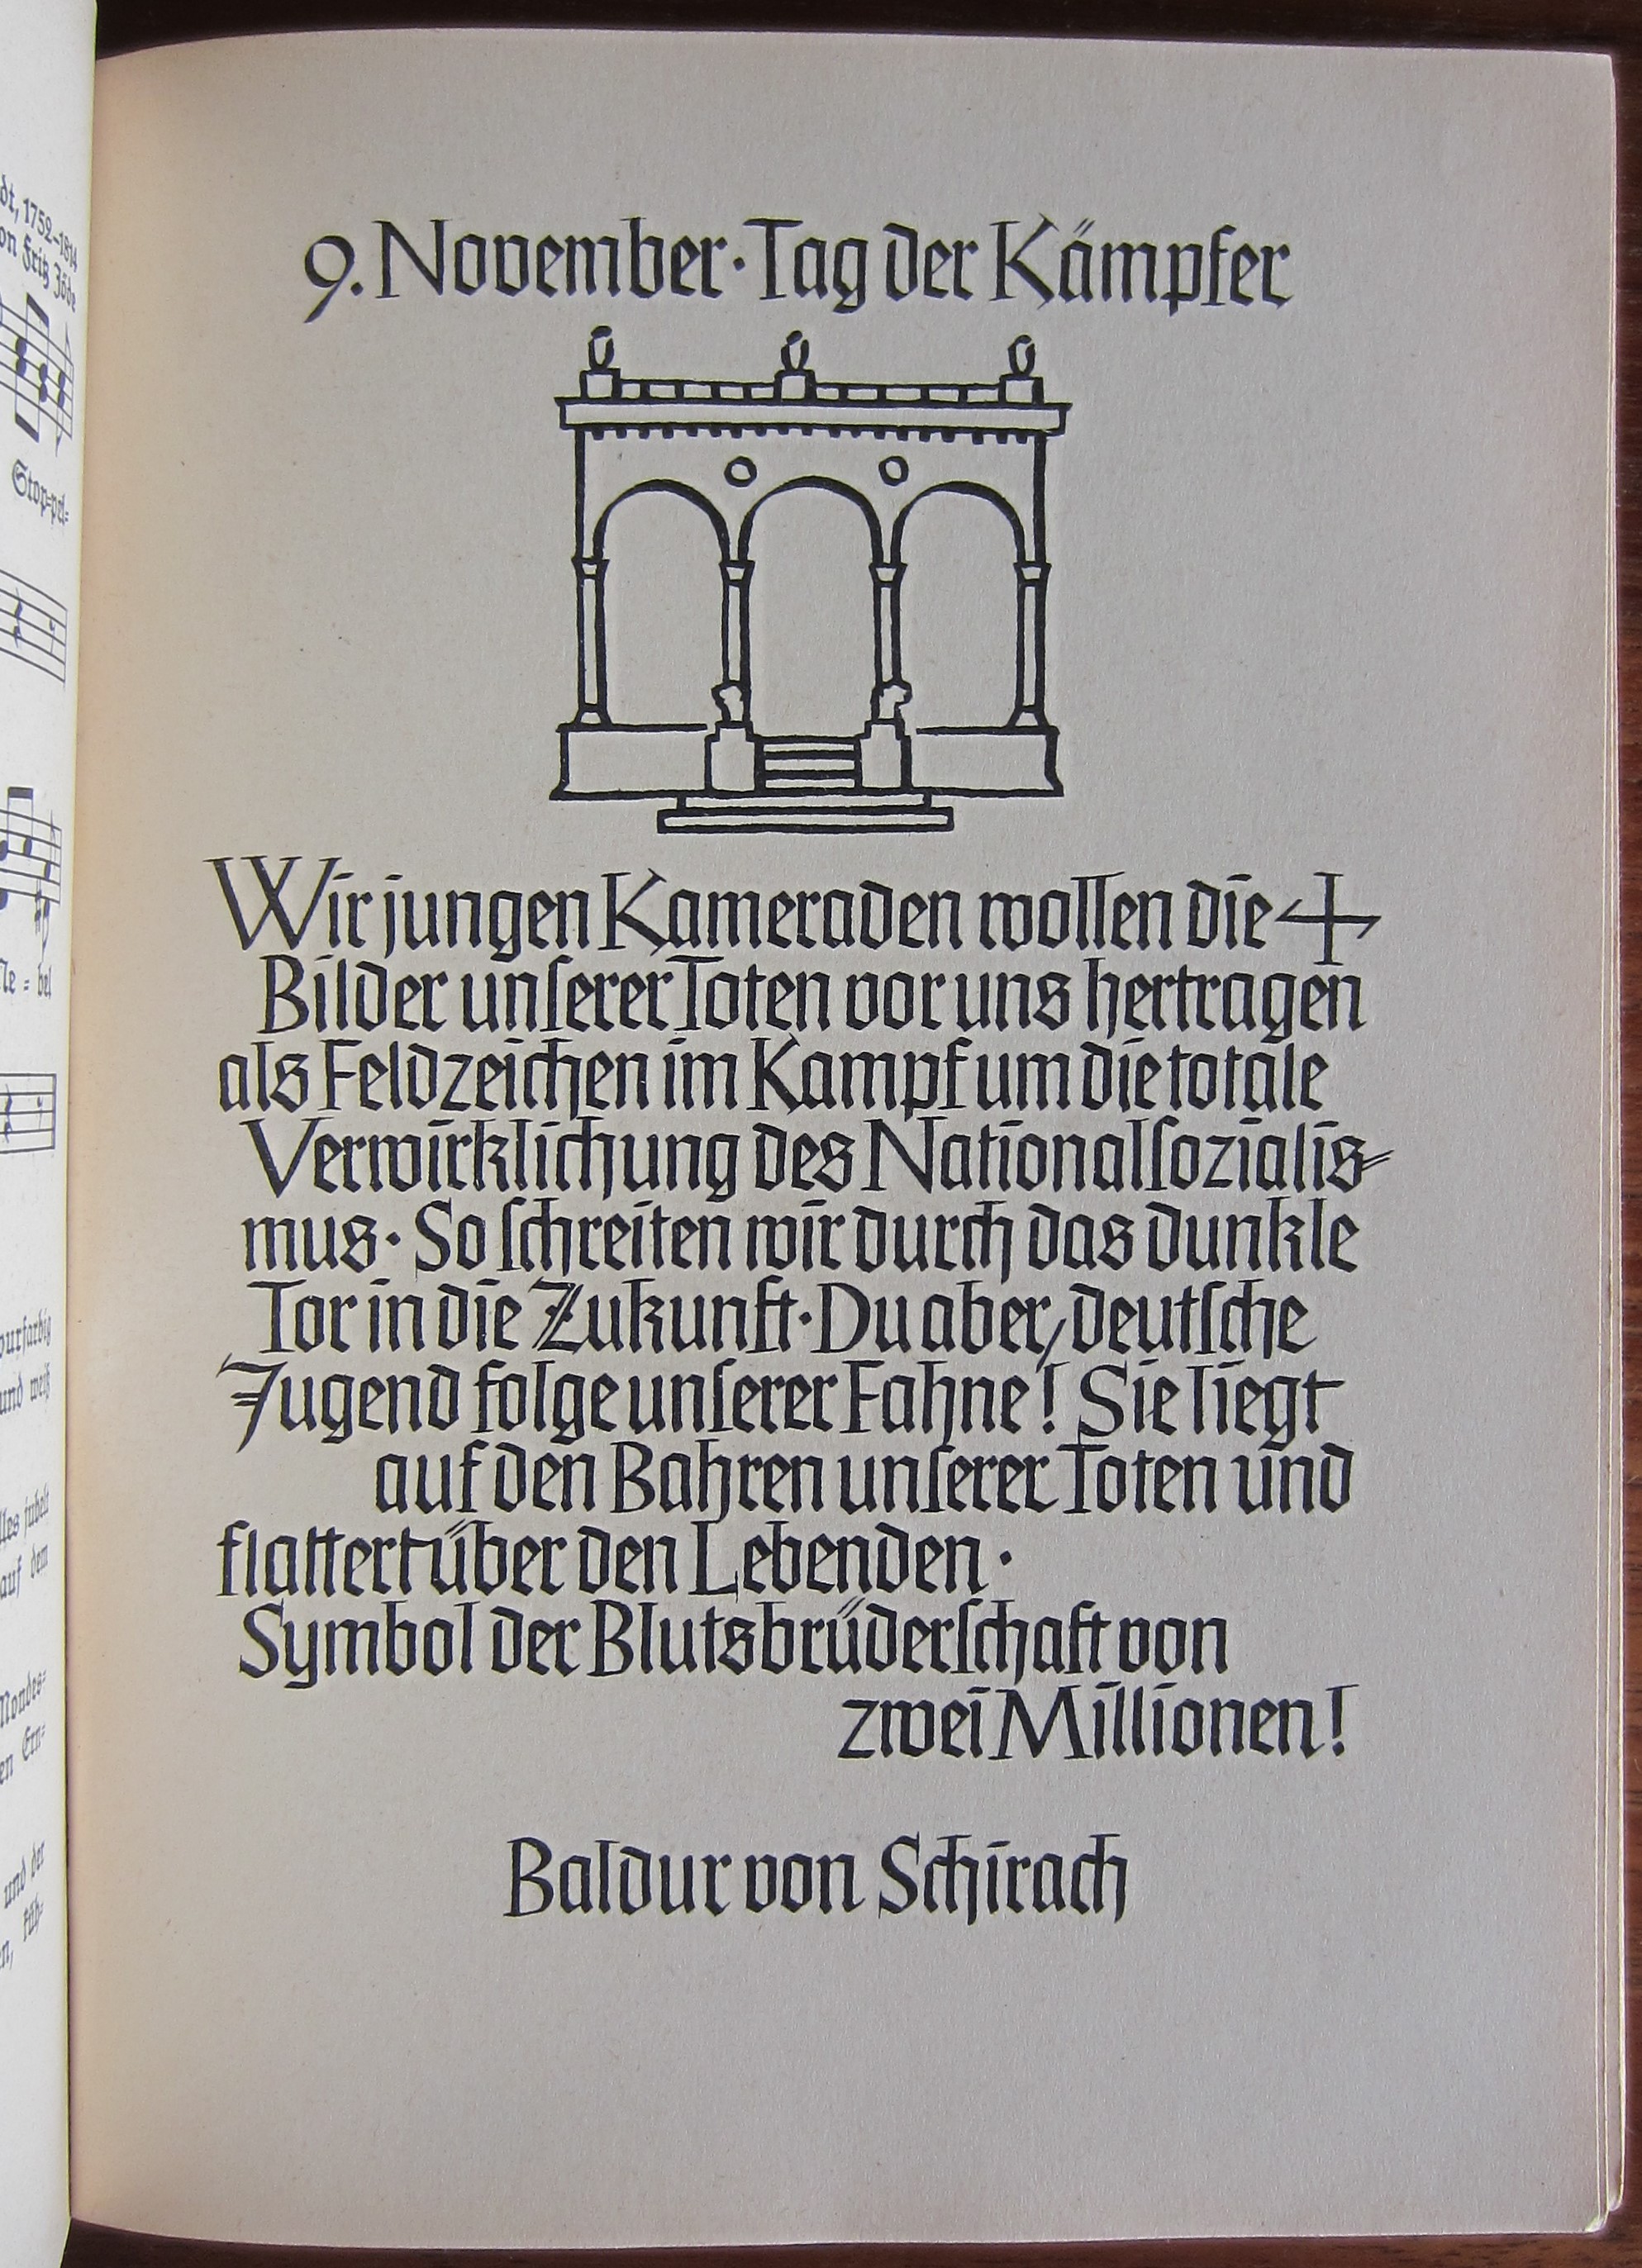 dt, 1752–1814
on Fritz Jöde
Stop=pel=
le = bel
und weiß
lles jubelt
auf dem
Mondes=
en Ern=
und der
n, füh=
9. November · Tag der Kämpfer
Wir jungen Kameraden wollen die
Bilder unſerer Toten vor uns hertragen
als Feldzeichen im Kampf um die totale
Verwirklichung des Nationalſozialis=
mus · So ſchreiten wir durch das dunkle
Tor in die Zukunft · Du aber, deutſche
Jugend folge unſerer Fahne! Sie liegt
auf den Bahren unſerer Toten und
flattert über den Lebenden ·
Symbol der Blutsbrüderſchaft von
zwei Millionen!
Baldur von Schirach